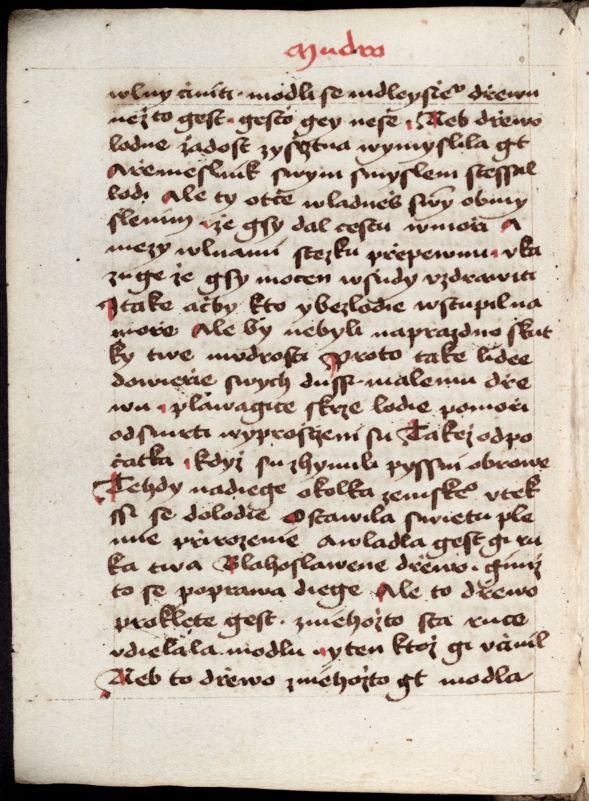 Mudro
wlny činiti · modli se mdleyšie° dřewu
než to gest · gesto gey nese · Neb dřewo
lodne žadost zysstna wymyslila gt
A řemeslnik swym smyslem stessal
lodi Ale ty otče wladneš swy obmy
slenim · že gsy dal cestu w moři A
mezy wlnami stezku přepewnu · vka
zuge že gsy mocen wsudy vzdrawiti
I take ačby kto y bez lodie wstupil na
moře · Ale by nebyli naprazdno skut
ky twe mudrosti Proto take lidee
dowierie swych dussi · malemu dře
wu · plawagice skrze lodie po moři
od smrti wyprosszeni su Takež od po
čatka · kdyz su zhynuli pyssni obrowe
Tehdy nadiege okolka zemske° vtek
ssi se do lodie Ostawila swietu ple
mie přirozenie A wladla gest gi ru
ka twa Blahoslawene dřewo · gimž
to se poprawa diege Ale to dřewo
proklete gest · z niehožto sta ruce
vdielala modlu · y ten ktož gi včinil
Neb to dřewo z niehožto gt modla